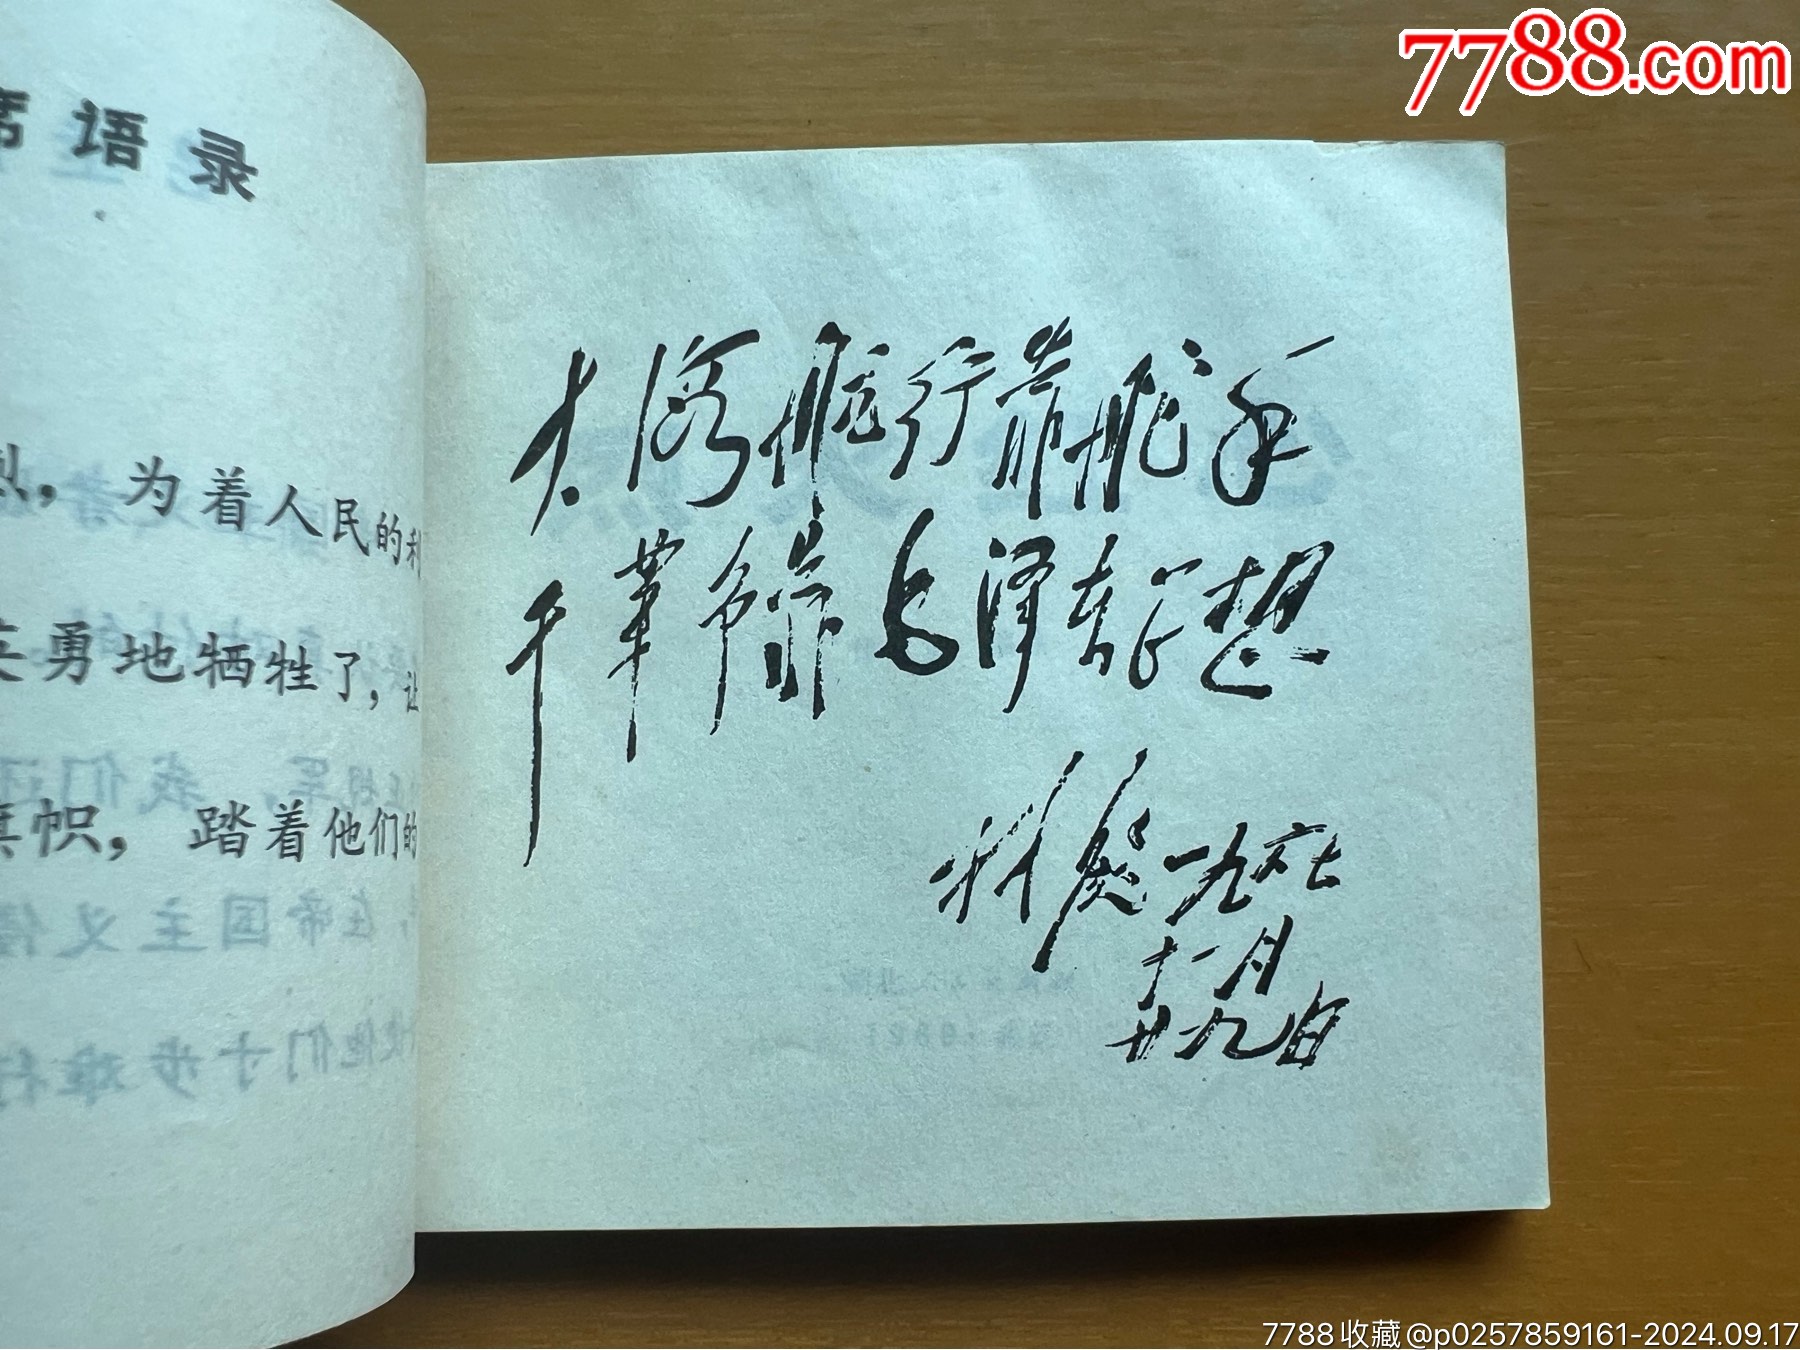 7788.com
席语录
烈，为着人民的利
英勇地牺牲了，让
旗帜，踏着他们的
大海航行靠舵手
干革命靠毛泽东思想
林彪 一九六七
十一月
廿九日
7788收藏@p0257859161-2024.09.17